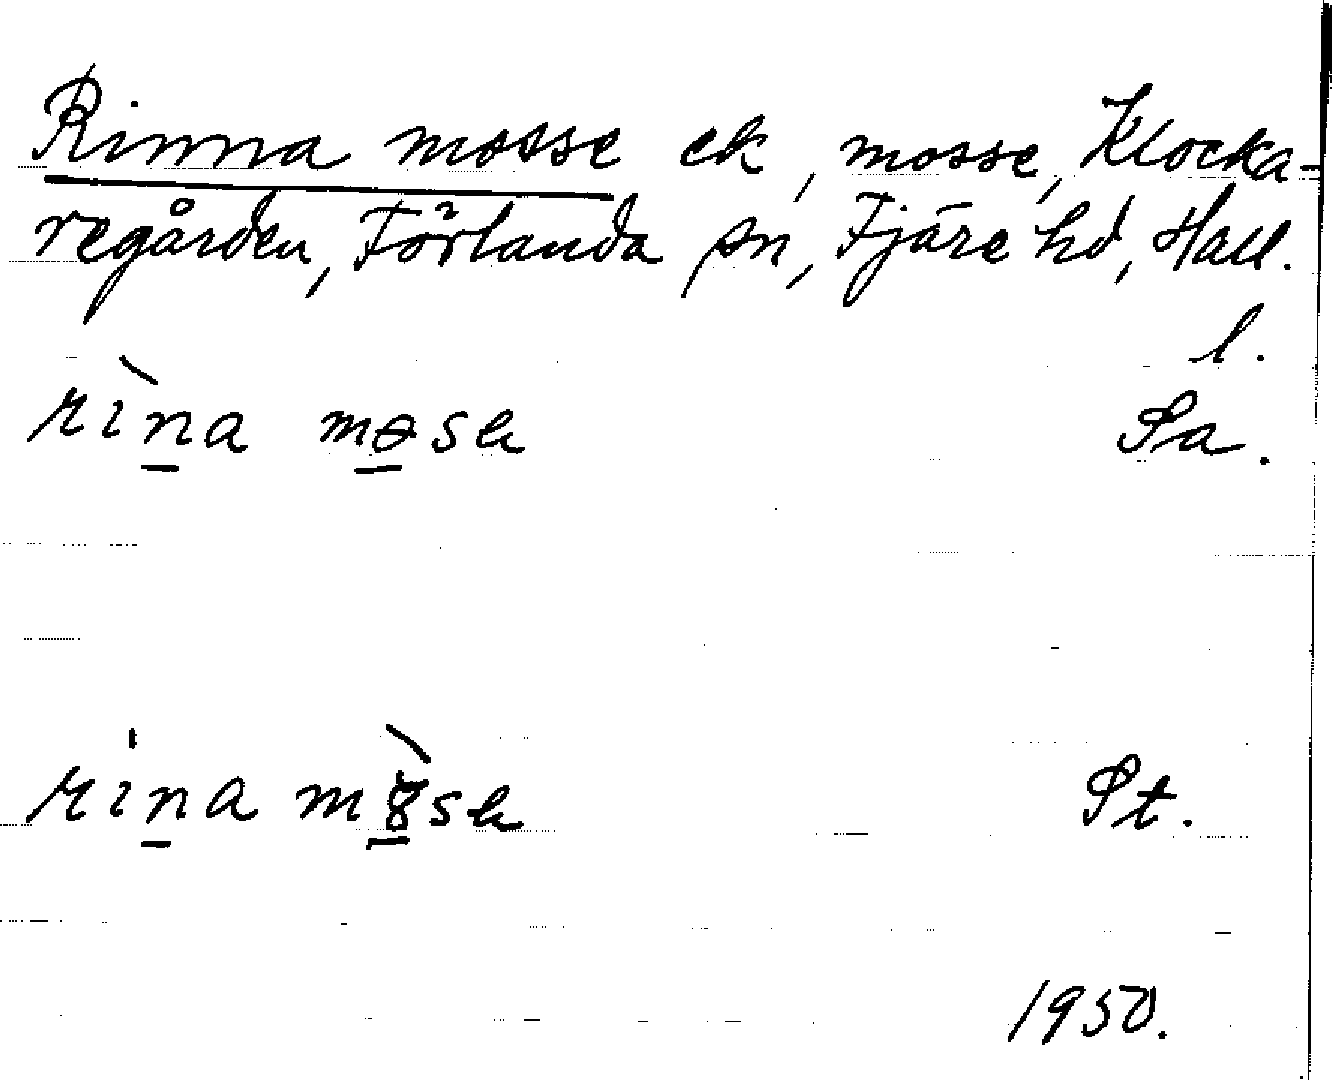 Rinna mosse ek, mosse, Klocka-
regården, Förlanda sn, Fjäre hd, Hall.
l.
rìna møsa Sa.
rina mø̀sa St.
1950.